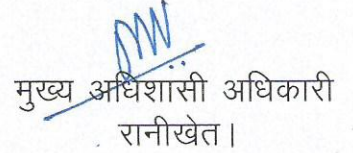 मुख्य अधिशासी अधिकारी
रानीखेत।